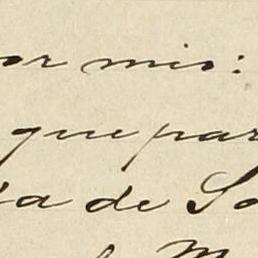 or mio:
que par
a de So